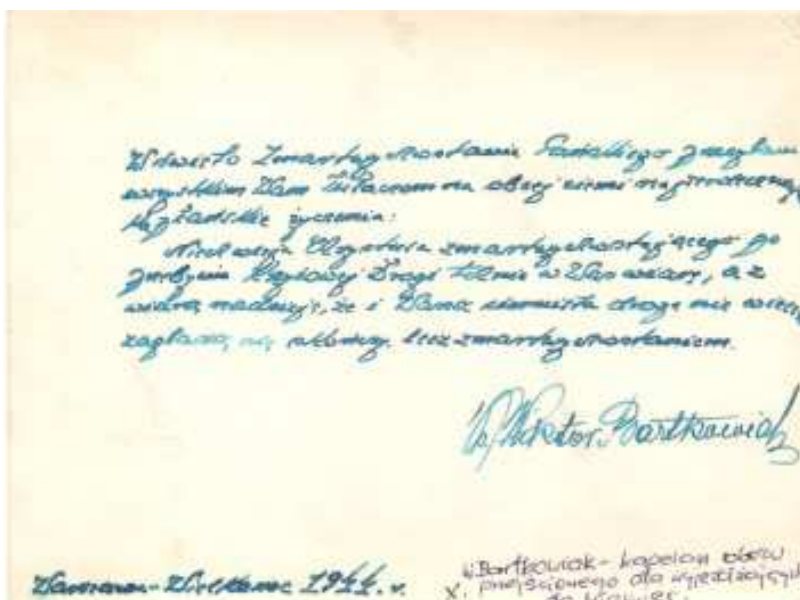 W święto Zmartwychwstania Pańskiego przesyłam
wszystkim Wam Tułaczom na obcej ziemi najserdeczniejsze
Kapłańskie życzenia:
Niech wizja Chrystusa zmartwychwstającego po
przebyciu Krzyżowej Drogi tchnie w Was wiarę, a z
wiarą nadzieję, że i Wasza ciernista droga nie wiecznie
zagłada, lecz zmartwychwstaniem.
Wiktor Bartkowiak
Warszawa - Wielkanoc 1944 r.
W. Bartkowiak - kapelan obozu
x. przejściowego dla wyjeżdżających
do Niemiec.